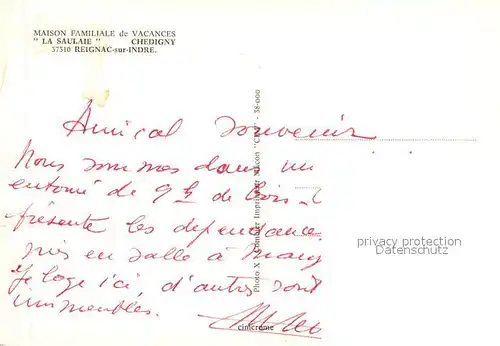 MAISON FAMILIALE de VACANCES
" LA SAULAIE " CHEDIGNY
37310 REIGNAC-sur-INDRE.
Amical souvenir
Nous sommes dans un
entouré de 9 h de bois.
présente les dependance
pris en salle à
Je loge ici, d'autres sont
immeubles.
cim crome
Photo X Combier Imprimeur Mâcon "CIM" - 38-000
privacy protection
Datenschutz